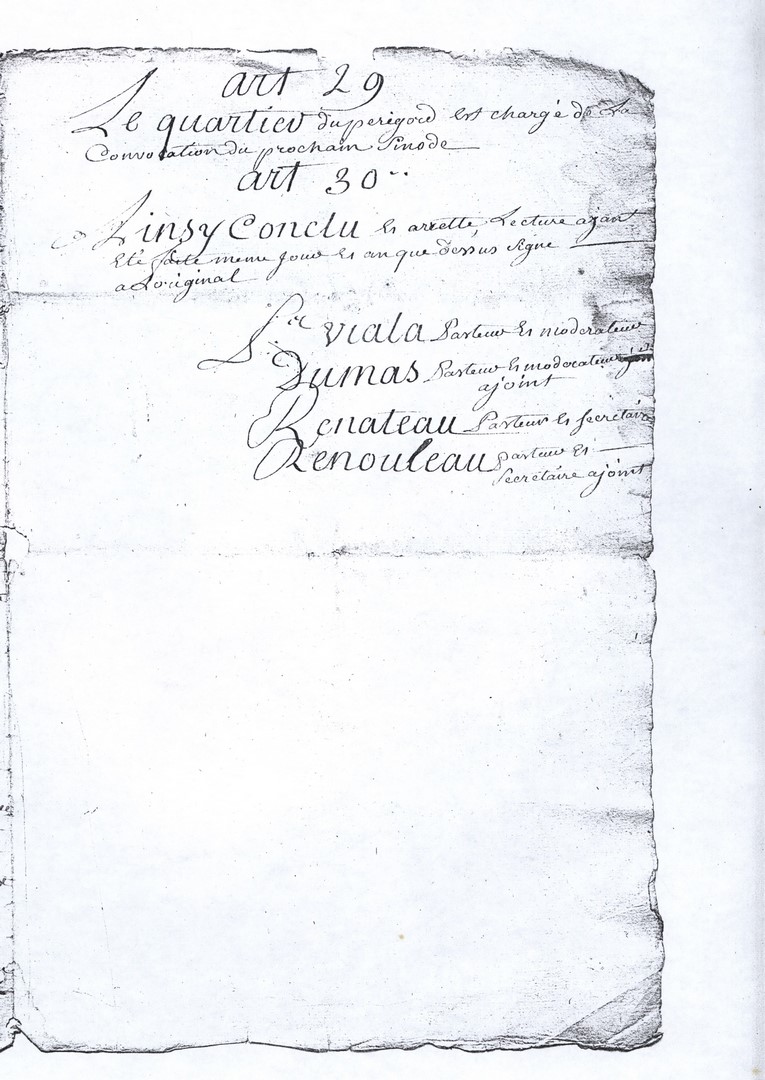 art 29
Le quartier du perigord est chargé de La
Convocation du prochain Sinode
art 30
Ainsy Conclu et arretté, Lecture ayant
Eté faite meme jour et an que dessus signe
a Loriginal
viala Pasteur et moderateur
Dumas Pasteur et moderateur
ajoint
Renateau Pasteur et secretaire
Renouleau pasteur et
secretaire ajoint